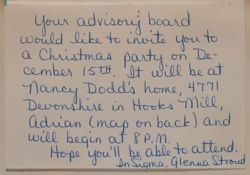 Your advisory board
would like to invite you to
a Christmas party on De-
cember 15th. It will be at
Nancy Dodd's home, 4771
Devonshire in Hooks Mill,
Adrian (map on back) and
will begin at 8 P.M.
Hope you'll be able to attend.
In Sigma, Glenna Stroud